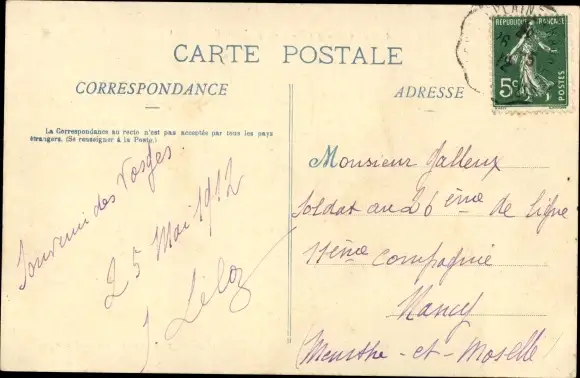 CARTE POSTALE
CORRESPONDANCE
La Correspondance au recto n'est pas acceptée par tous les pays
étrangers. (Se renseigner à la Poste.)
Souvenir des Vosges.
25 Mai 1912
ADRESSE
REPUBLIQUE FRANÇAISE
5c
POSTES
Monsieur Galleux
Soldat au 26 ème de ligne
11ème Compagnie
Nancy
Meurthe-et-Moselle